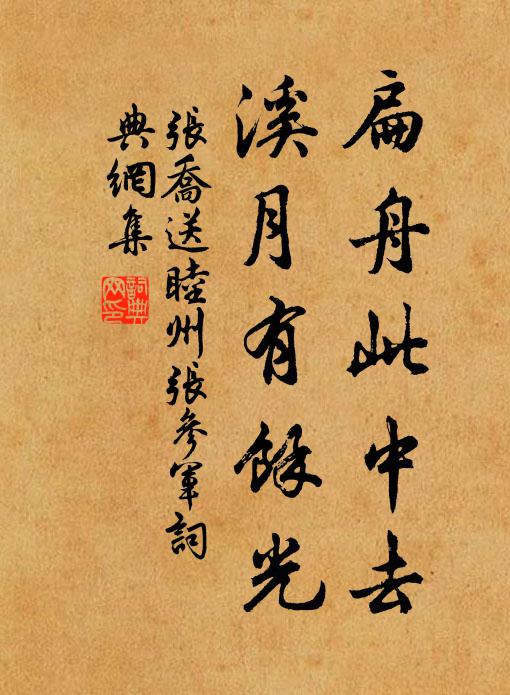 扁舟此中去
溪月有餘光
張喬送睦州張參軍詞
典網集
詞典
网印